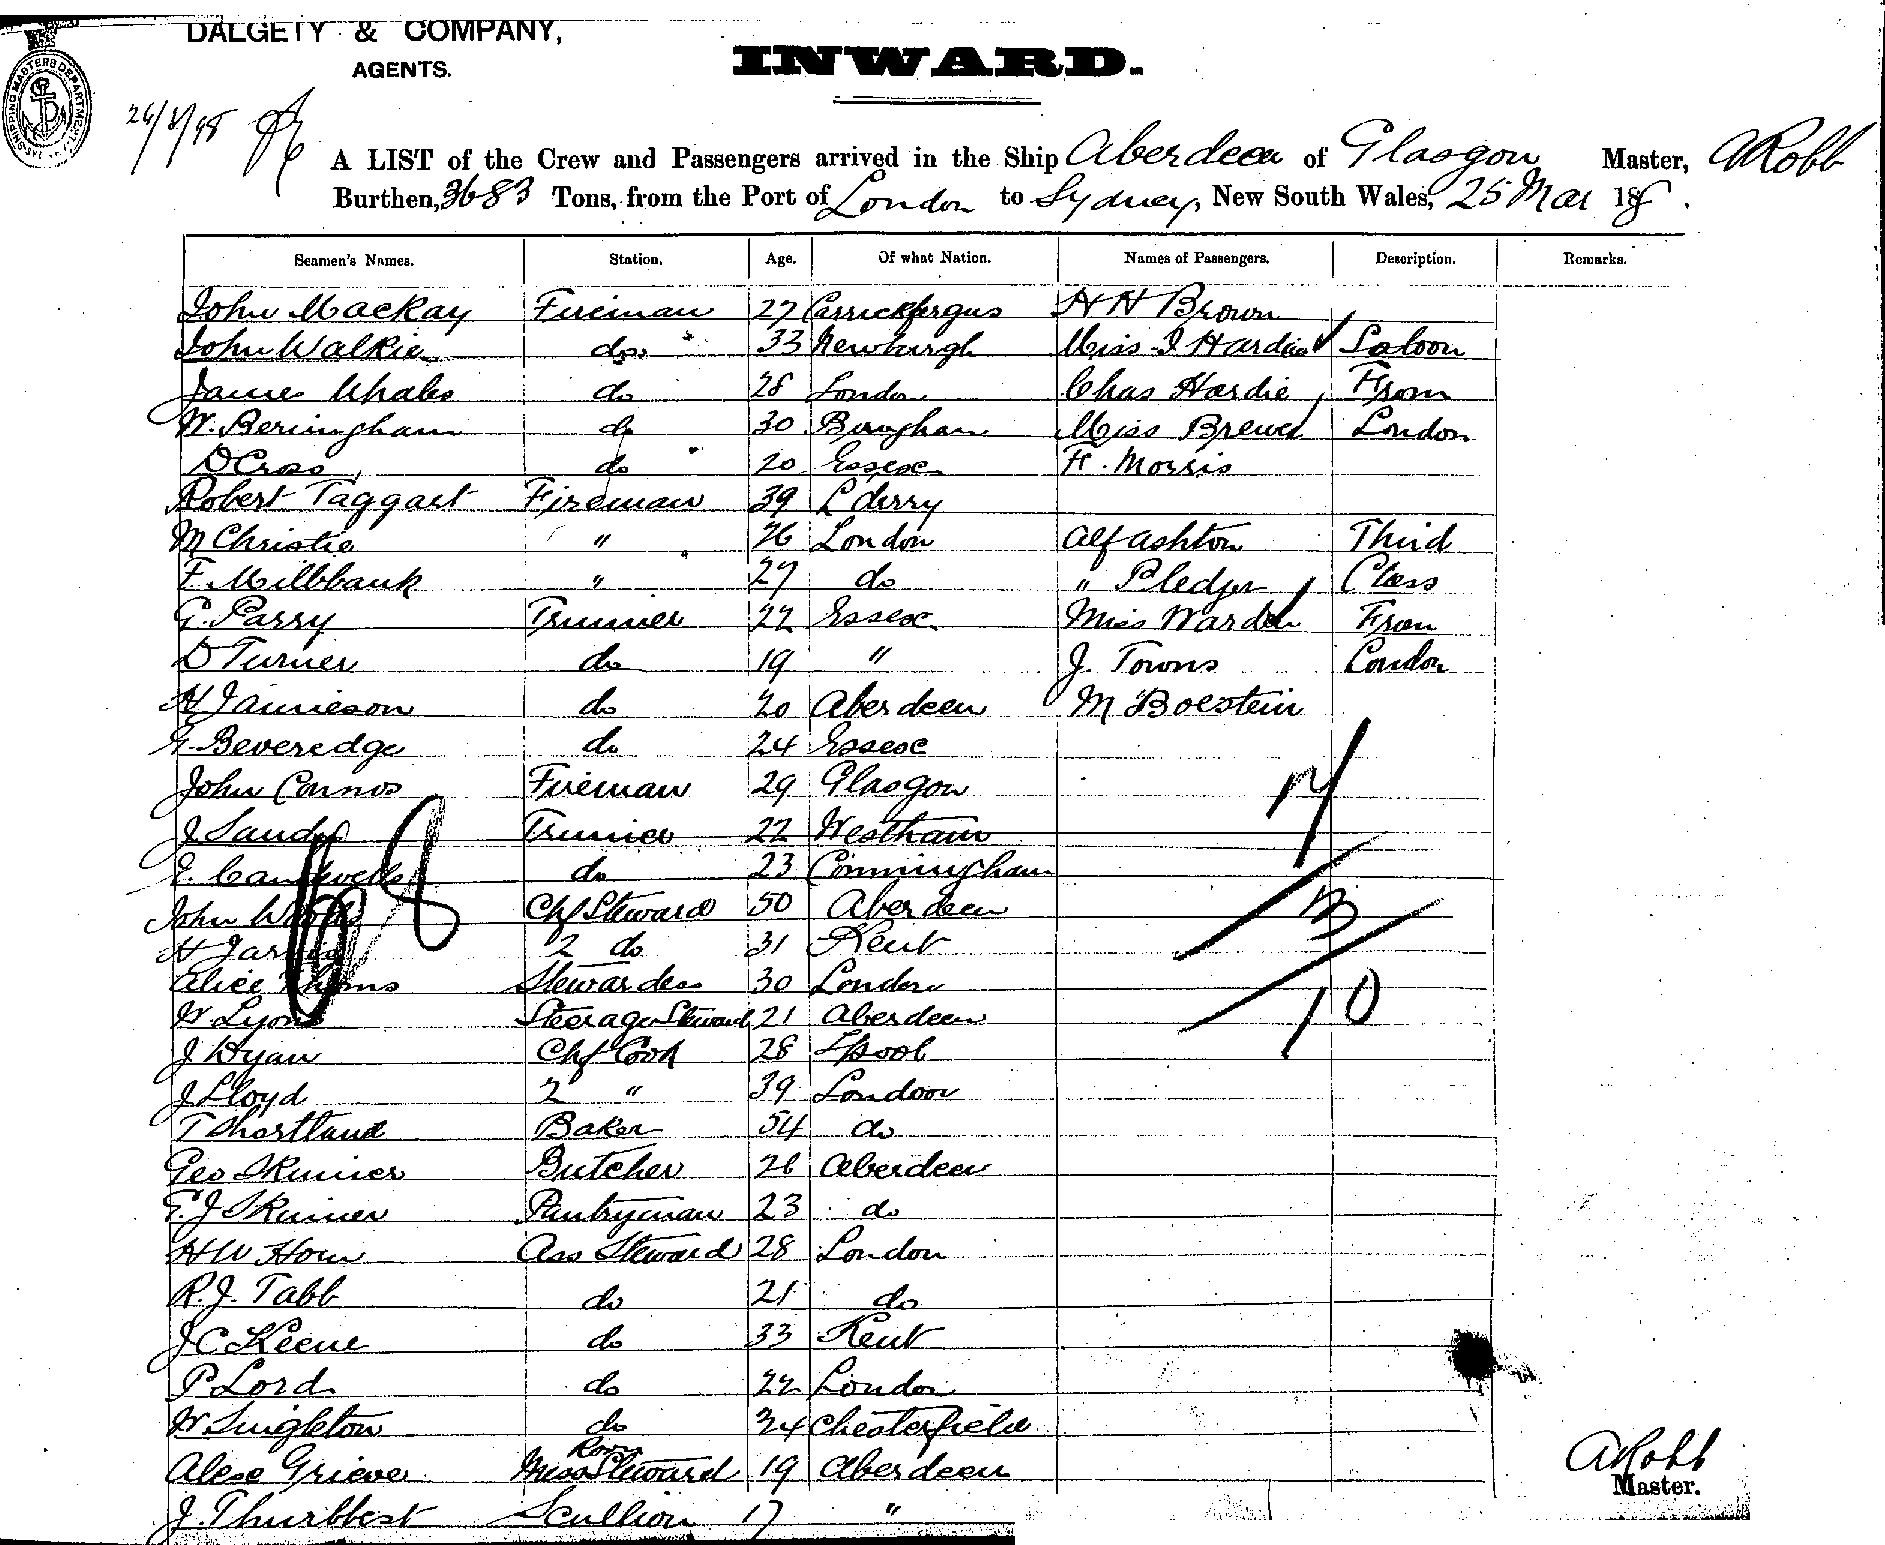 DALGETY & COMPANY,
AGENTS.
INWARD.
SHIPPING MASTERS DEPARTMENT
A LIST of the Crew and Passengers arrived in the Ship Aberdeen of Glasgow Master, A Robb
Burthen, 3683 Tons, from the Port of London to Sydney, New South Wales, 25 Mar 18
Seamen's Names. Station. Age. Of what Nation. Names of Passengers. Description. Remarks.
John Mackay Fireman 27 Carrickfergus H H Brown
John Walkie do 33 Newburgh Miss I Hardie Saloon
James Whales do 28 London Chas Hardie From
W. Beringham do 30 Miss Brewer London
D Cross do 20 Essex F. Morris
Robert Taggart Fireman 39 L derry
M Christie " 26 London Alf Ashton Third
F. Millbank " 27 do " Pledger Class
G. Parry Trimmer 22 Essex Miss Warden From
D Turner do 19 " J. Towns London
H Jamieson do 20 Aberdeen M Boestein
G. Beveredge do 24 Essex
John Connos Fireman 29 Glasgow
J Sands Trimmer 22 Westham
E. do 23
John Chf Steward 50 Aberdeen
H Jarvis 2 do 31 Kent
Alice Thoms Stewardess 30 London
W Lyons Steerage Steward 21 Aberdeen
10
J Hyan Chf Cook 28 Lpool
J Lloyd 2 " 39 London
T Shortland Baker 54 do
Geo Skinner Butcher 26 Aberdeen
E. J Skinner Pantryman 23 do
H W Horn Ass Steward 28 London
R. J. Tabb do 21 do
J C Keene do 33 Kent
P Lord do 22 London
W. Singleton do 34 Chesterfield
Room
Alexe Grieve Mess Steward 19 Aberdeen
J. Thurbbest Scullion 17 "
A Robb
Master.